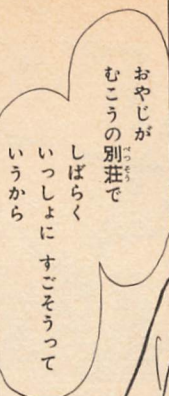 おやじが
むこうの別荘で
しばらく
いっしょに すごそうって
いうから